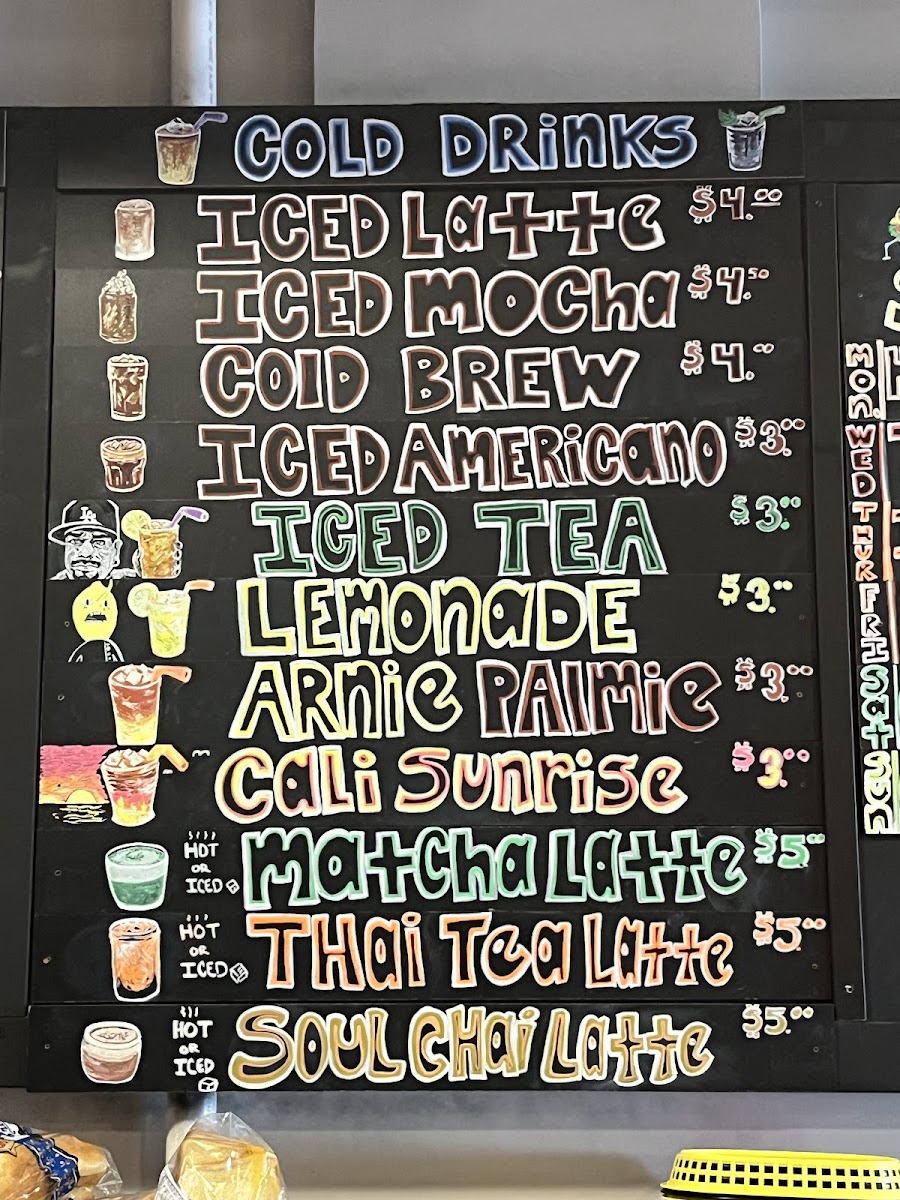 COLD DRiNKS
ICED Latte $4.00
ICED MOCha $4.50
COlD BREW $4.00
ICED AMERicano $3.00
ICED TEA $3.00
LEMOnaDE $3.00
ARNiE PAlMiE $3.00
Cali Sunrise $3.00
HOT
OR
ICED
MatCha Latte $5.00
HOT
OR
ICED
THai Tea Latte $5.00
HOT
OR
ICED
SOUL CHai Latte $5.00
MON.
WED
THUR
FRI
Sat
SUN
LA